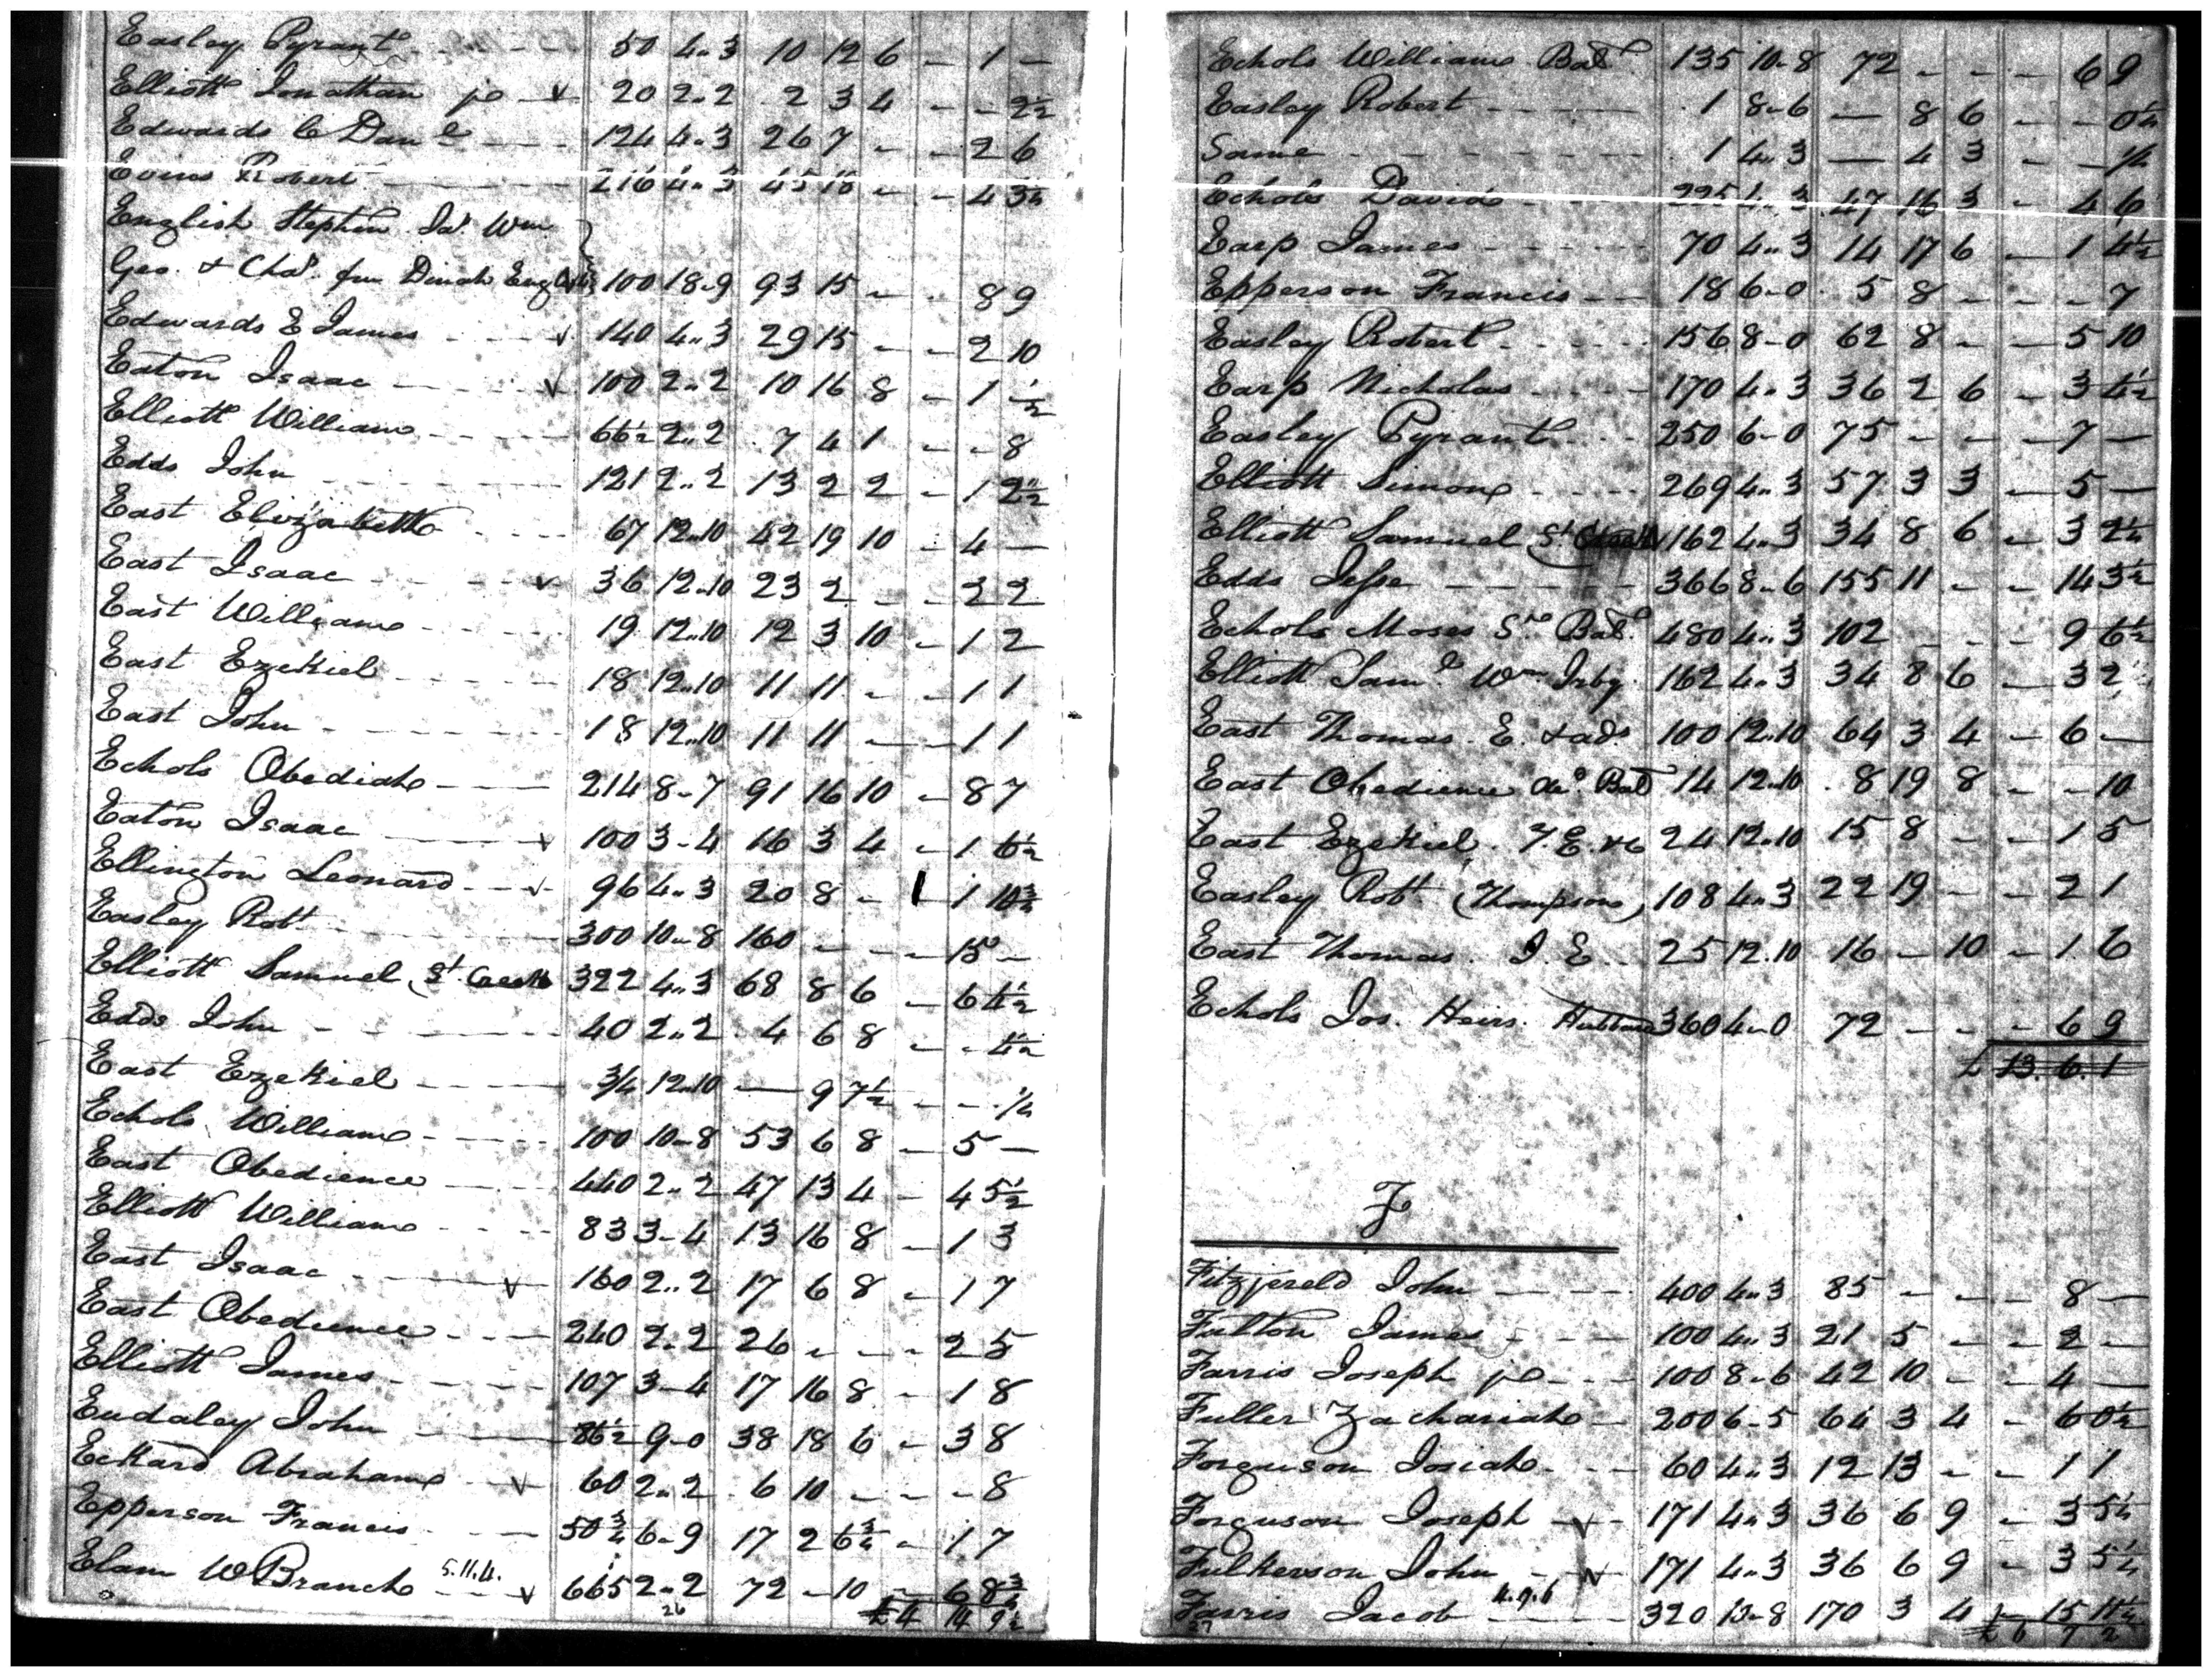 Easley Pyrant 50 4..3 10 12 6 - 1 -
Elliott Jonathan jr v 20 2..2 2 3 4 - - 2½
Edwards C Danl 124 4..3 26 7 - - 2 6
Evans Robert 216 4..3 45 18 - - 4 3¼
English Stephen Jas Wm
Geo. & Chas. fm Dinah English 100 18-9 93 15 - - 8 9
Edwards E James v 140 4..3 29 15 - - 2 10
Eaton Isaac v 100 2..2 10 16 8 - 1 ½
Elliott William 66½ 2..2 7 4 1 - - 8
Edds John 121 2..2 13 2 2 - 1 2½
East Elizabeth 67 12..10 42 19 10 - 4 -
East Isaac v 36 12..10 23 2 - - 2 2
East William 19 12..10 12 3 10 - 1 2
East Ezekiel 18 12..10 11 11 - - 1 1
East John 18 12..10 11 11 - - 1 1
Echols Obediah 214 8-7 91 16 10 - 8 7
Eaton Isaac v 100 3-4 16 3 4 - 1 6½
Ellington Leonard v 96 4..3 20 8 - 1 10¾
Easley Robt 300 10-8 160 - - - 15 -
Elliott Samuel St. Creek 322 4..3 68 8 6 - 6 4½
Edds John 40 2..2 4 6 8 - - 4½
East Ezekiel ¾ 12..10 - 9 7½ - - ¼
Echols William 100 10-8 53 6 8 - 5 -
East Obedience 440 2..2 47 13 4 - 4 5½
Elliott William 83 3-4 13 16 8 - 1 3
East Isaac v 160 2..2 17 6 8 - 1 7
East Obedience 240 2..2 26 - - - 2 5
Elliott James 107 3-4 17 16 8 - 1 8
Eudaley John 86½ 9-0 38 18 6 - 3 8
Eckard Abraham v 60 2..2 6 10 - - - 8
Epperson Francis 50¾ 6-9 17 2 6¾ - 1 7
Elam W Branch 5.11.4. v 665 2..2 72 - 10 - 6 8¾
26 £4 14 9½
Echols William Bal 135 10-8 72 - - - 6 9
Easley Robert 1 8-6 - 8 6 - - 0¾
Same 1 4..3 - 4 3 - - ½
Echols David 225 4..3 47 16 3 - 4 6
Earp James 70 4..3 14 17 6 - 1 4½
Epperson Francis 18 6-0 5 8 - - - 7
Easley Robert 156 8-0 62 8 - - 5 10
Earp Nicholas 170 4..3 36 2 6 - 3 4½
Easley Pyrant 250 6-0 75 - - - 7 -
Elliott Simon 269 4..3 57 3 3 - 5 -
Elliott Samuel St. 162 4..3 34 8 6 - 3 2¼
Edds Jesse 366 8-6 155 11 - - 14 3½
Echols Moses Sr. Bal. 480 4..3 102 - - - 9 6½
Elliott Saml Wm Irby 162 4..3 34 8 6 - 3 2
East Thomas E. 100 12..10 64 3 4 - 6 -
East Obedience Bal 14 12..10 8 19 8 - - 10
East Ezekiel T.E. 24 12..10 15 8 - - 1 5
Easley Robt (Thompson) 108 4..3 22 19 - - 2 1
East Thomas I.E. 25 12.10 16 - 10 - 1 6
Echols Jos. Heirs. Hubbard 360 4-0 72 - - - 6 9
£ 13.6.1
F
Fitzjereld John 400 4..3 85 - - - 8 -
Fulton James 100 4..3 21 5 - - 2 -
Farris Joseph jr 100 8-6 42 10 - - 4 -
Fuller Zachariah 200 6-5 64 3 4 - 6 0½
Forguson Josiah 60 4..3 12 13 - - 1 1
Forguson Joseph v 171 4..3 36 6 9 - 3 5¼
Fulkerson John v 171 4..3 36 6 9 - 3 5¼
Farris Jacob 4.9.6 320 10-8 170 3 4 - 15 11½
27 £6 7 2